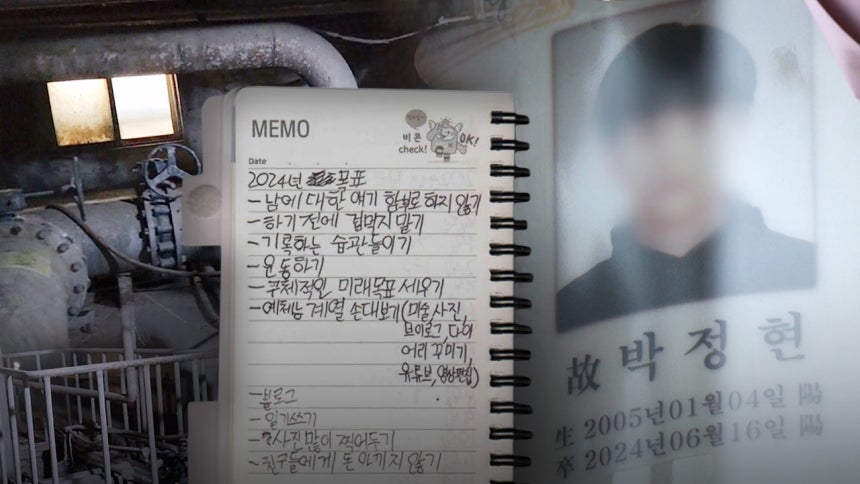 MEMO
비콘
check!
OK!
Date
2024년 목표
-남에 대한 얘기 함부로 하지 않기
-하기 전에 겁먹지 말기
-기록하는 습관들이기
-운동하기
-구체적인 미래목표 세우기
-예체능 계열 손대보기(미술, 사진,
브이로그, 다이
어리 꾸미기,
유튜브, 영상편집)
-블로그
-일기쓰기
-사진 많이 찍어두기
-친구들에게 돈 아끼지 않기
故 박정현
生 2005년01월04일 陽
卒 2024년06월16일 陽